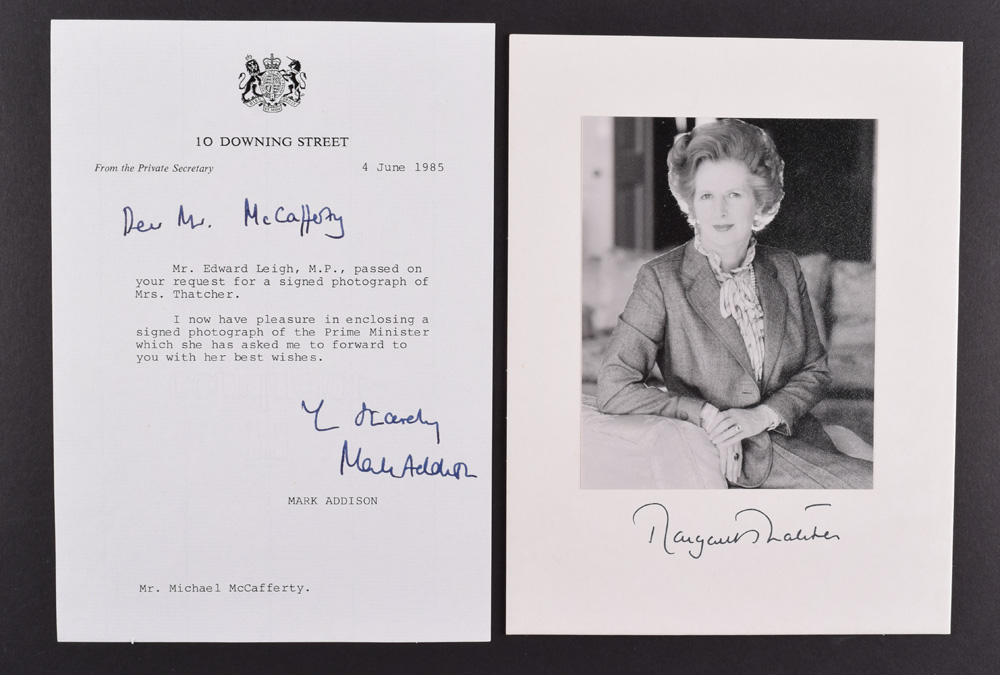 10 DOWNING STREET
From the Private Secretary 4 June 1985
Dear Mr. McCafferty
Mr. Edward Leigh, M.P., passed on
your request for a signed photograph of
Mrs. Thatcher.
I now have pleasure in enclosing a
signed photograph of the Prime Minister
which she has asked me to forward to
you with her best wishes.
Mark Addison
MARK ADDISON
Mr. Michael McCafferty.
Margaret Thatcher